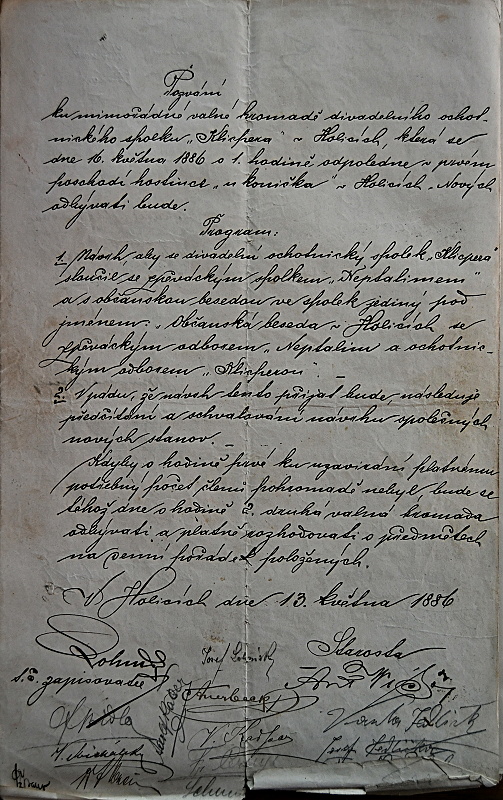 Pozvání
ku mimořádné valné hromadě divadelního ochot-
nického spolku „Klicpera“ v Holicích, která se
dne 16. května 1886 o 1. hodině odpoledne v prvém
poschodí hostince „u koníčka“ v Holicích Nových
odbývati bude.
Program:
1. Návrh aby se divadelní ochotnický spolek „Klicpera“
sloučil se zpěváckým spolkem „Neptalimem“
a s občanskou besedou ve spolek jediný pod
jménem: „Občanská beseda v Holicích se
zpěváckým odborem „Neptalim a ochotnic-
kým odborem „Klicperou
2. V pádu, že návrh tento přijat bude následuje
předčítání a schvalování návrhu společných
nových stanov.
Kdyby o hodině prvé ku uzavírání platnému
potřebný počet členů pohromadě nebyl, bude se
téhož dne o hodině 2. druhá valná hromada
odbývati a platně rozhodovati o předmětech
na denní pořádek položených.
V Holicích dne 13. května 1886
Starosta
zapisovatel